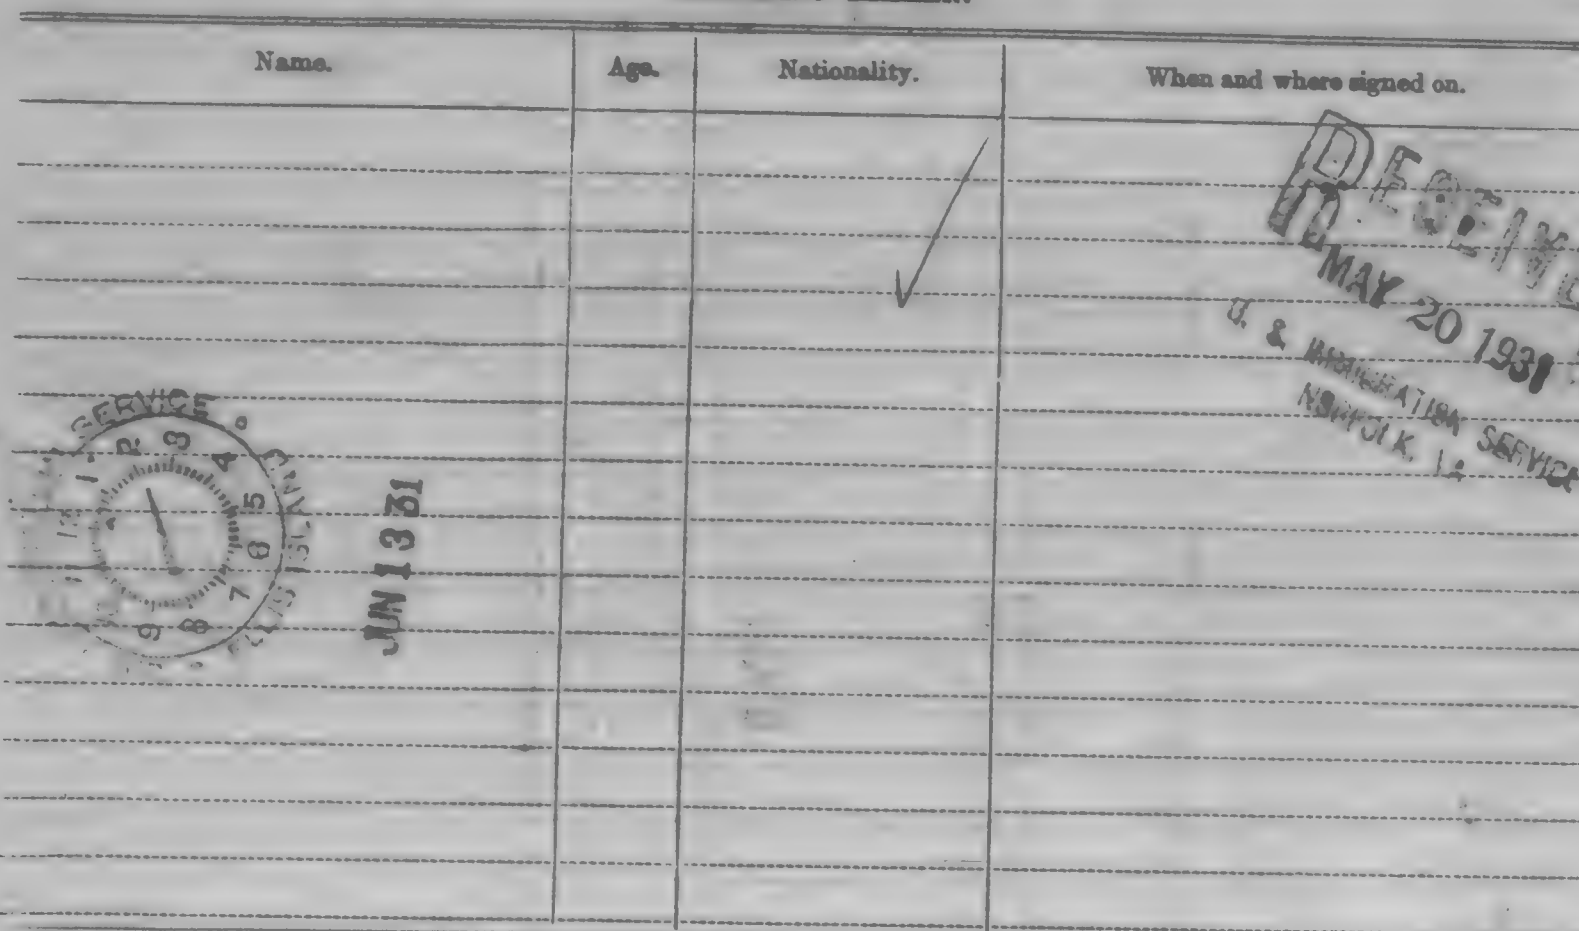 Name. Age. Nationality. When and where signed on.
RECEIVE
MAY 20 1931
U. S. IMMIGRATION SERVICE
NORFOLK,
SERVICE
ELLIS ISLAND
1 2 3 4 5 6 7 8 9
JUN 1 3 31